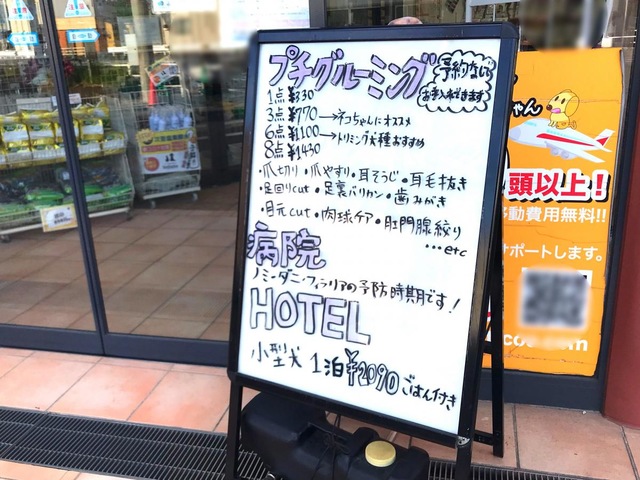 プチグルーミング
予約なしで
お手入れできます
1点 ¥330
3点 ¥770 → ネコちゃんにオススメ
6点 ¥1100 → トリミング犬種おすすめ
8点 ¥1430
・爪切り・爪やすり・耳そうじ・耳毛抜き
・足回りcut・足裏バリカン・歯みがき
・目元cut・肉球ケア・肛門腺絞り
…etc
病院
ノミ・ダニ・フィラリアの予防時期です!
HOTEL
小型犬 1泊¥2090 ごはん付き
ちゃん
頭以上!
動費用無料!!
サポートします。